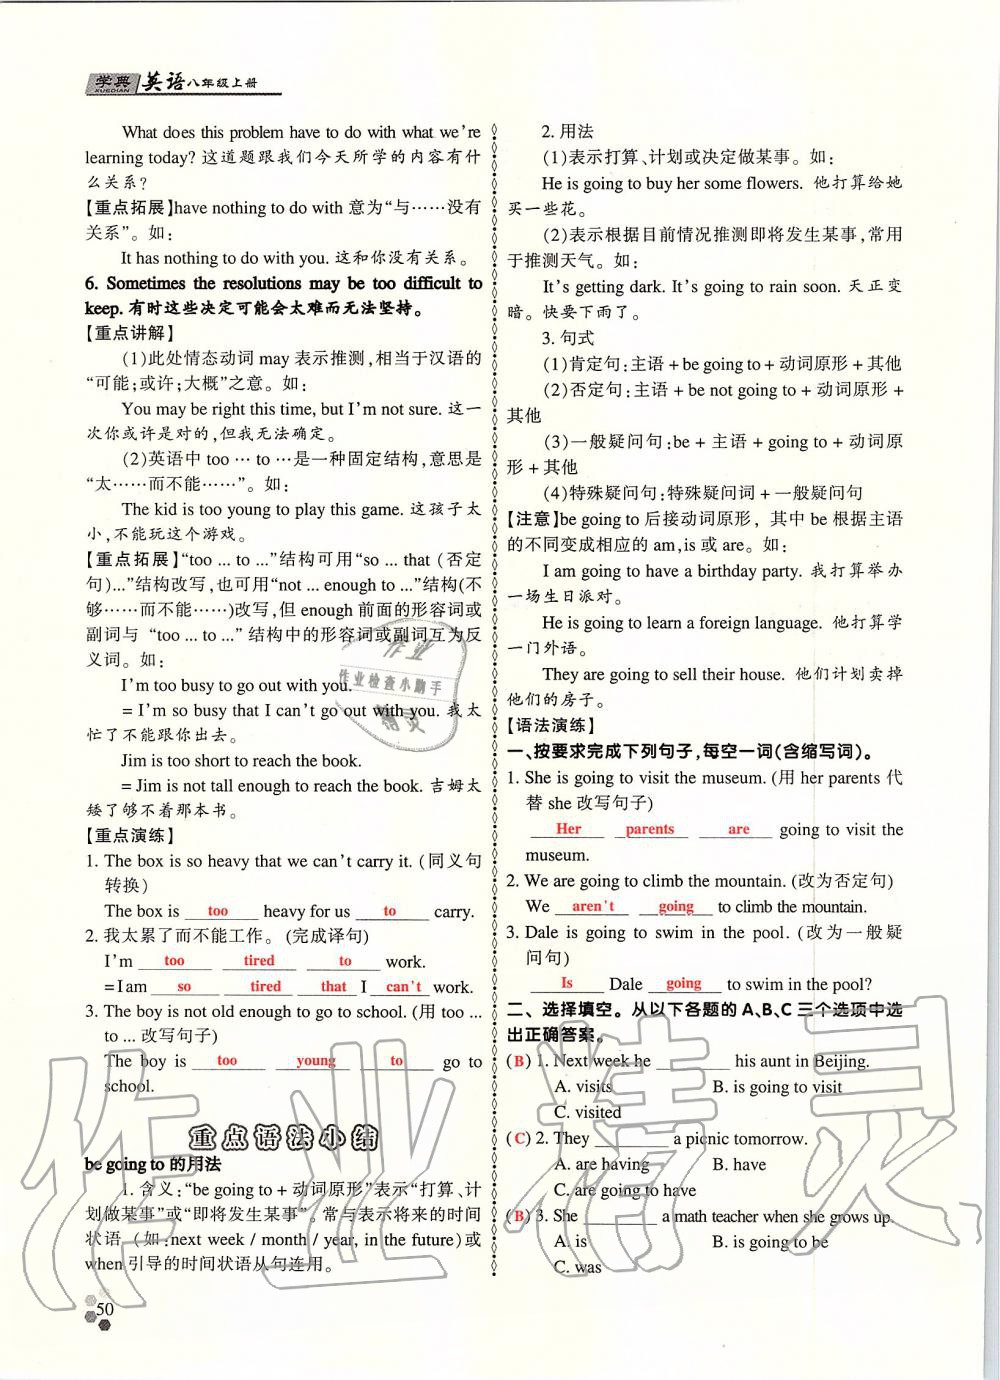 学典 XUEDIAN 英语八年级上册
What does this problem have to do with what we're
learning today? 这道题跟我们今天所学的内容有什
么关系?
【重点拓展】have nothing to do with 意为“与……没有
关系”。如:
It has nothing to do with you. 这和你没有关系。
6. Sometimes the resolutions may be too difficult to
keep. 有时这些决定可能会太难而无法坚持。
【重点讲解】
(1)此处情态动词 may 表示推测,相当于汉语的
“可能;或许;大概”之意。如:
You may be right this time, but I'm not sure. 这一
次你或许是对的,但我无法确定。
(2)英语中 too … to …是一种固定结构,意思是
“太……而不能……”。如:
The kid is too young to play this game. 这孩子太
小,不能玩这个游戏。
【重点拓展】“too ... to ...”结构可用“so ... that (否定
句)...”结构改写,也可用“not ... enough to ...”结构(不
够……而不能……)改写,但 enough 前面的形容词或
副词与 “too ... to ...” 结构中的形容词或副词互为反
义词。如:
I'm too busy to go out with you.
= I'm so busy that I can't go out with you. 我太
忙了不能跟你出去。
Jim is too short to reach the book.
= Jim is not tall enough to reach the book. 吉姆太
矮了够不着那本书。
【重点演练】
1. The box is so heavy that we can't carry it. (同义句
转换)
The box is too heavy for us to carry.
2. 我太累了而不能工作。(完成译句)
I'm too tired to work.
=I am so tired that I can't work.
3. The boy is not old enough to go to school. (用 too ...
to ... 改写句子)
The boy is too young to go to
school.
重点语法小结
be going to 的用法
1. 含义:“be going to + 动词原形”表示“打算、计
划做某事”或“即将发生某事”。常与表示将来的时间
状语 (如:next week / month / year, in the future)或
when 引导的时间状语从句连用。
50
2. 用法
(1)表示打算、计划或决定做某事。如:
He is going to buy her some flowers. 他打算给她
买一些花。
(2)表示根据目前情况推测即将发生某事,常用
于推测天气。如:
It's getting dark. It's going to rain soon. 天正变
暗。快要下雨了。
3. 句式
(1)肯定句:主语 + be going to + 动词原形 + 其他
(2)否定句:主语 + be not going to + 动词原形 +
其他
(3)一般疑问句:be + 主语 + going to + 动词原
形 + 其他
(4)特殊疑问句:特殊疑问词 + 一般疑问句
【注意】be going to 后接动词原形, 其中 be 根据主语
的不同变成相应的 am,is 或 are。如:
I am going to have a birthday party. 我打算举办
一场生日派对。
He is going to learn a foreign language. 他打算学
一门外语。
They are going to sell their house. 他们计划卖掉
他们的房子。
【语法演练】
一、按要求完成下列句子,每空一词(含缩写词)。
1. She is going to visit the museum. (用 her parents 代
替 she 改写句子)
Her parents are going to visit the
museum.
2. We are going to climb the mountain. (改为否定句)
We aren't going to climb the mountain.
3. Dale is going to swim in the pool. (改为一般疑
问句)
Is Dale going to swim in the pool?
二、选择填空。从以下各题的 A、B、C 三个选项中选
出正确答案。
(B) 1. Next week he ________ his aunt in Beijing.
A. visits B. is going to visit
C. visited
(C) 2. They ________ a picnic tomorrow.
A. are having B. have
C. are going to have
(B) 3. She ________ a math teacher when she grows up.
A. is B. is going to be
C. was
作业
作业检查小助手
精灵
作业精灵